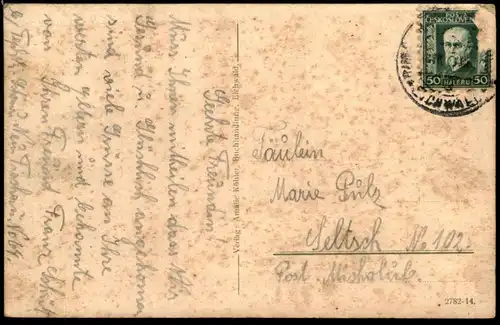 Geehrte Freundin!
Muss Ihnen mittheilen dass wir
Gesund u. Glücklich angekommen
sind viele Grüsse an Ihre
werten Eltern und bekannte
von Ihren Freund Franz
Verlag: Amalie Köhler, Buchhandlung, Eichwald.
ČESKOSLOVENSKO
50 HALÉŘŮ 50
Fräulein
Marie Pülz
Seltsch No 102.
Post. Micholub.
2782-14.